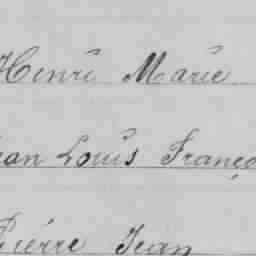 Henri Marie
ean Louis Franço
Pierre Jean